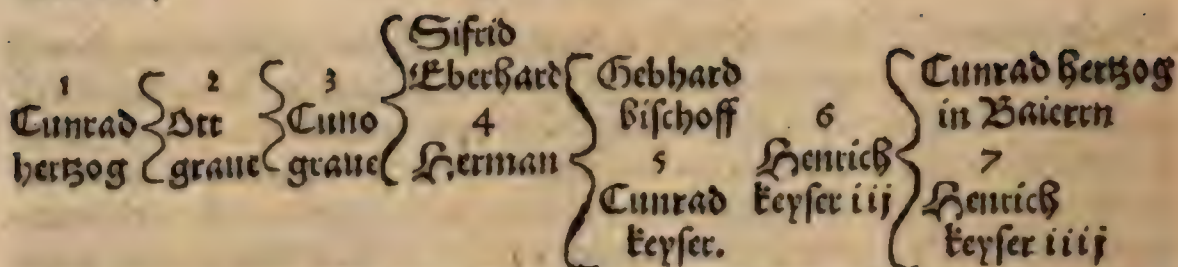 1
Cunrad
hertzog
2
Ott
graue
3
Cuno
graue
Sifrid
Eberhard
4
Herman
Gebhard
bischoff
5
Cunrad
keyser.
6
Henrich
keyser iij
Cunrad hertzog
in Baierrn
7
Henrich
keyser iiij